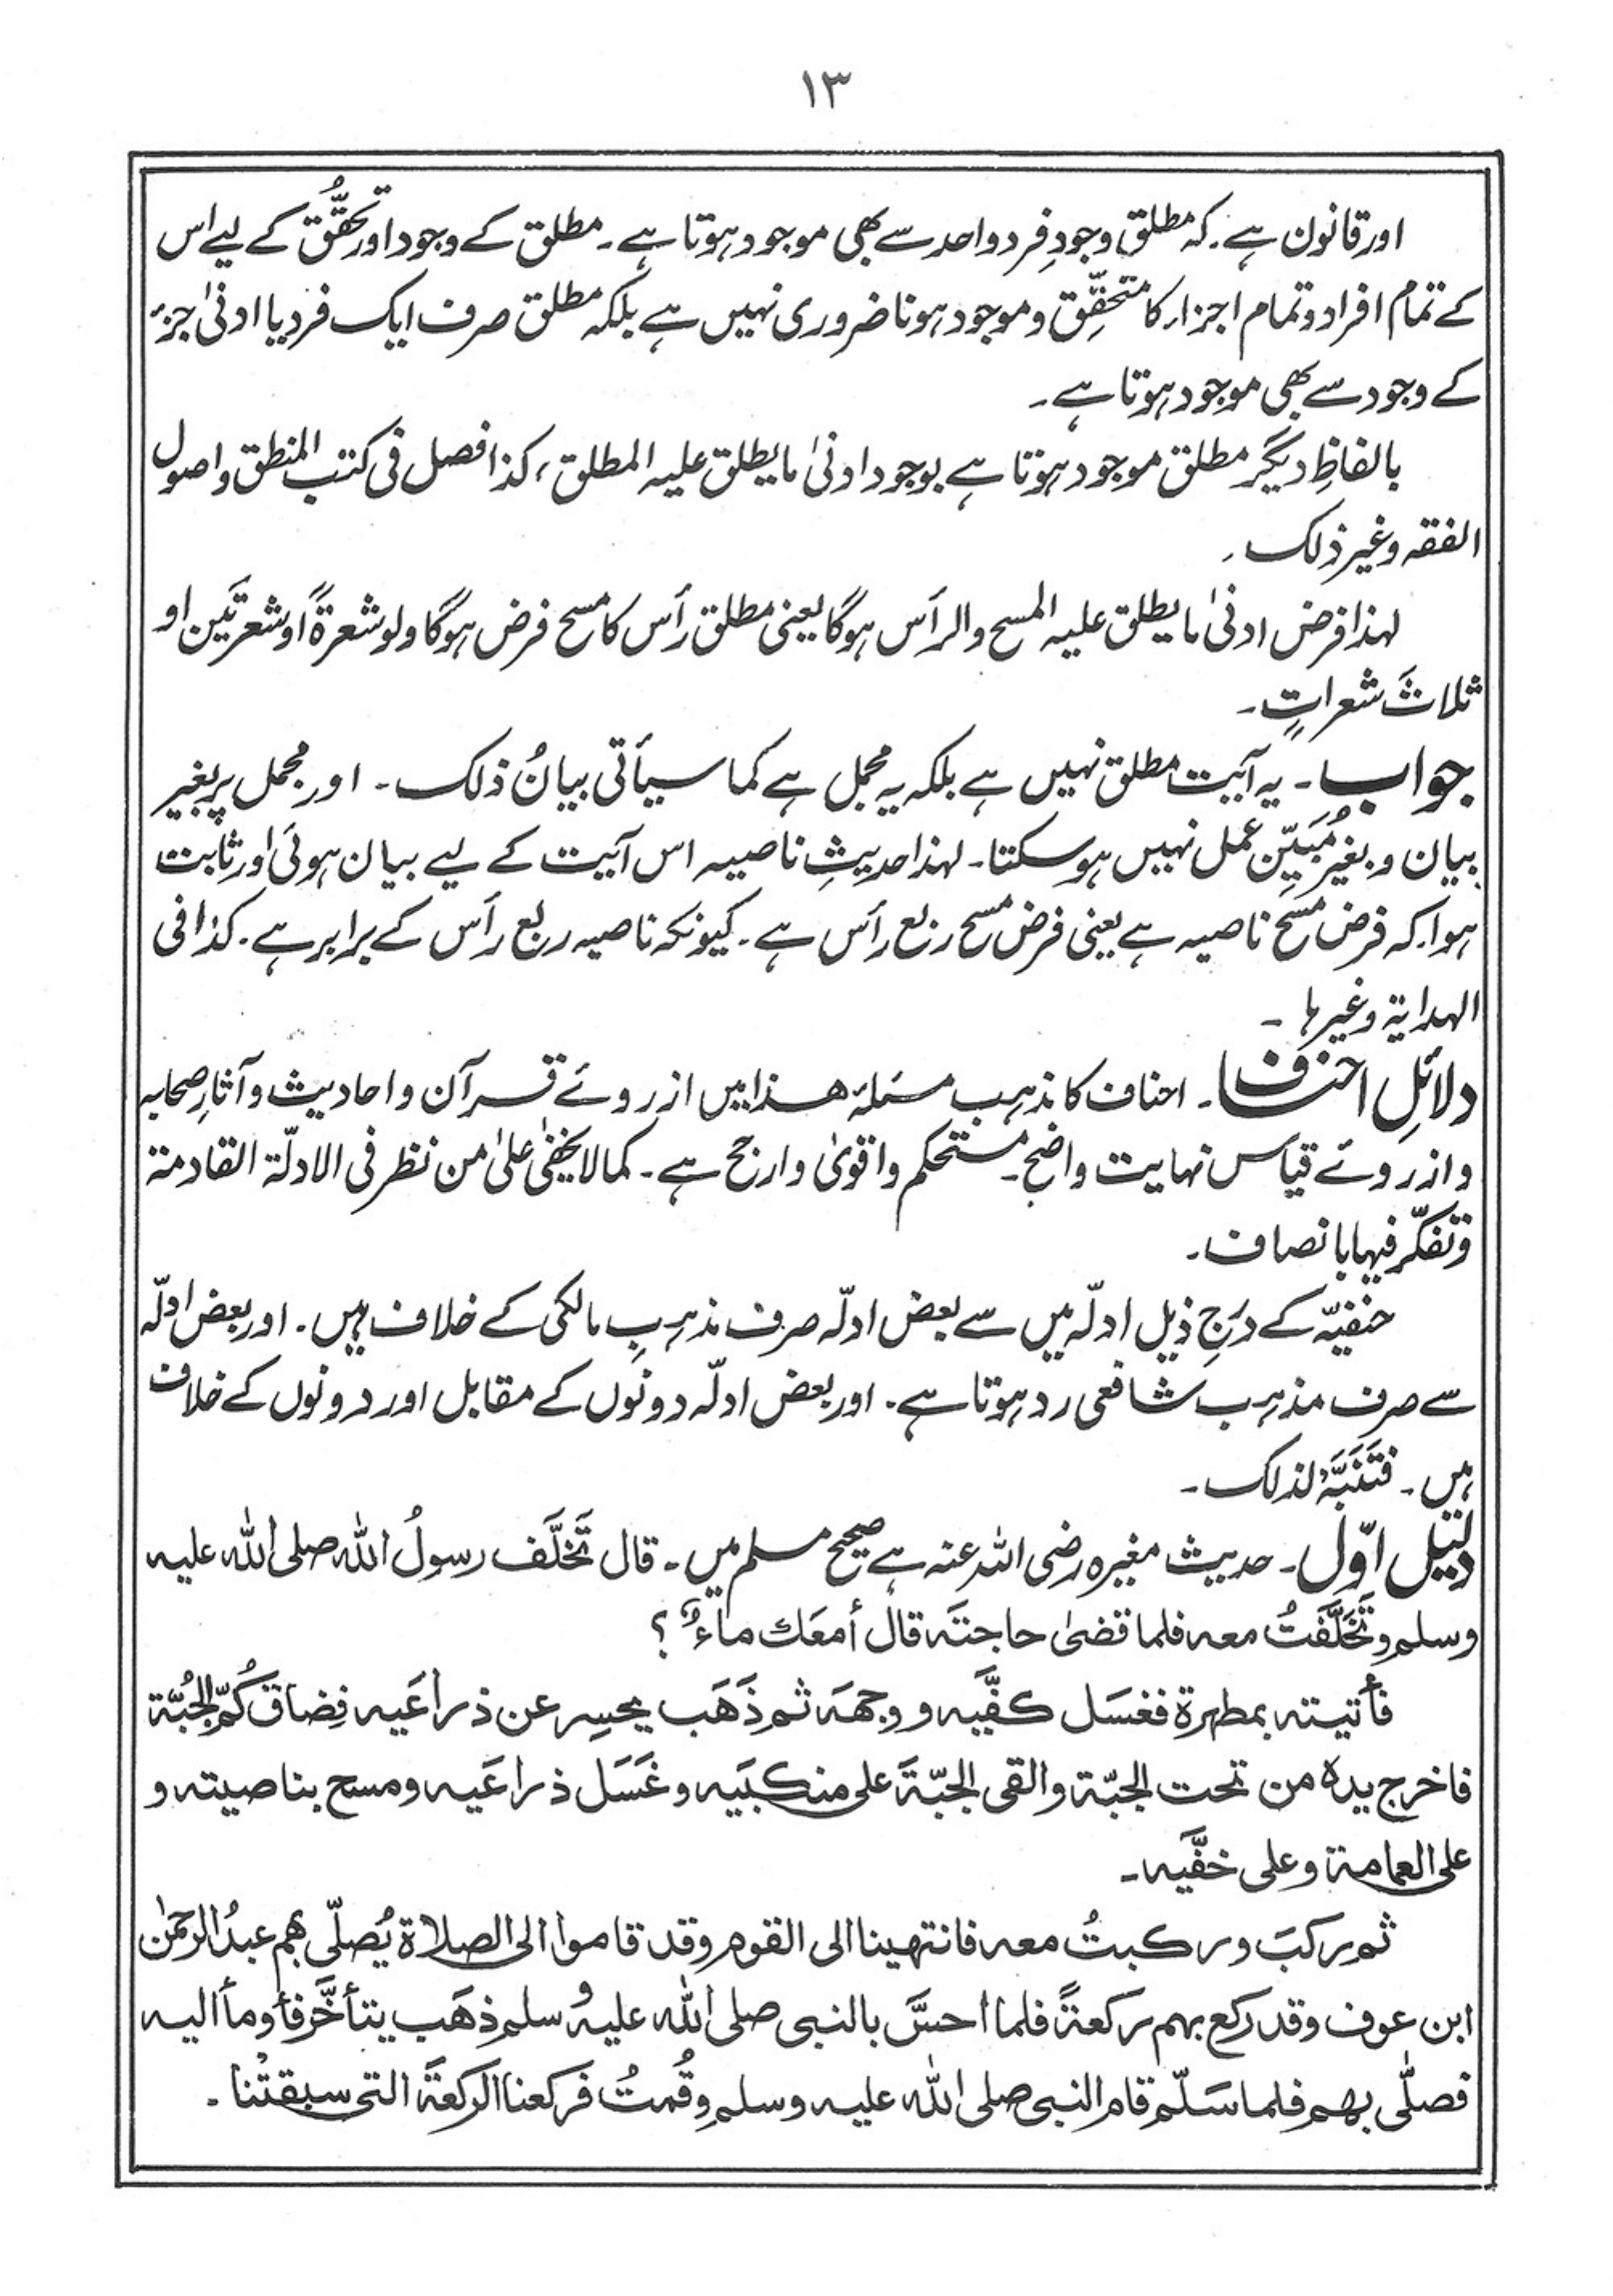 ۱۳
اور قانون ہے۔ کہ مطلق وجودِ فرد واحد سے بھی موجود ہوتا ہے۔ مطلق کے وجود اور تحقُّق کے لیے اس
کے تمام افراد و تمام اجزاء کا متحقِّق و موجود ہونا ضروری نہیں ہے بلکہ مطلق صرف ایک فرد یا ادنیٰ جزء
کے وجود سے بھی موجود ہوتا ہے۔
بالفاظِ دیگر مطلق موجود ہوتا ہے بوجود ادنیٰ ما یطلق علیہ المطلق، کذا فصل فی کتب المنطق و اصول
الفقہ و غیر ذلک۔
لہذا فرض ادنیٰ ما یطلق علیہ المسح والرأس ہوگا یعنی مطلق رأس کا مسح فرض ہوگا ولو شعرةً او شعرتَین او
ثلاثَ شعراتٍ۔
جواب۔ یہ آیت مطلق نہیں ہے بلکہ یہ مجمل ہے کما سیأتی بیانُ ذلک۔ اور مجمل پر بغیر
بیان و بغیر مُبَیِّن عمل نہیں ہوسکتا۔ لہذا حدیثِ ناصیہ اس آیت کے لیے بیان ہوئی اور ثابت
ہوا۔ کہ فرض مسح ناصیہ ہے یعنی فرض مسح ربع رأس ہے۔ کیونکہ ناصیہ ربع رأس کے برابر ہے۔ کذا فی
الہدایۃ وغیرہا۔
دلائلِ احناف۔ احناف کا مذہب مسئلہ ھذا میں از روئے قرآن و احادیث و آثارِ صحابہ
و از روئے قیاس نہایت واضح۔ مستحکم و اقویٰ و ارجح ہے۔ کما لا یخفیٰ علیٰ من نظر فی الادلّۃ القادمۃ
و تفکّر فیہا بانصاف۔
حنفیّہ کے درَجِ ذیل ادلّہ میں سے بعض ادلّہ صرف مذہبِ مالکی کے خلاف ہیں۔ اور بعض ادلّہ
سے صرف مذہب شافعی رد ہوتا ہے۔ اور بعض ادلّہ دونوں کے مقابل اور دونوں کے خلاف
ہیں۔ فتَنَبَّہْ لذلک۔
دلیل اوّل۔ حدیث مغیرہ رضی اللہ عنہ ہے صحیح مسلم میں۔ قال تَخلَّف رسولُ الله صلی الله علیہ
وسلم وتَخَلَّفتُ معہ فلما قضیٰ حاجتَہ قال أمعَك ماءٌ؟
فأتیتہ بمطہرة فغسَل کفَّیہ و وجهَہ ثم ذَهَب یحسِر عن ذراعَیہ فضاق کُمّ الجُبّة
فاخرج یدہ من تحت الجبّة والقی الجبّةَ علی منکبَیہ وغَسَل ذراعَیہ ومسح بناصیتہ و
علی العمامة وعلی خفَّیہ۔
ثم رکبَ ورکبتُ معہ فانتهینا الی القوم وقد قاموا الی الصلاة یُصلّی بهم عبدُ الرحمٰن
ابن عوف وقد رکع بهم رکعةً فلما احسَّ بالنبی صلی الله علیہ وسلم ذهَب یتأخَّر فأومأ الیہ
فصلّٰی بهم فلما سَلّم قام النبی صلی الله علیہ وسلم وقُمتُ فرکعنا الرکعةَ التی سبقتْنا۔